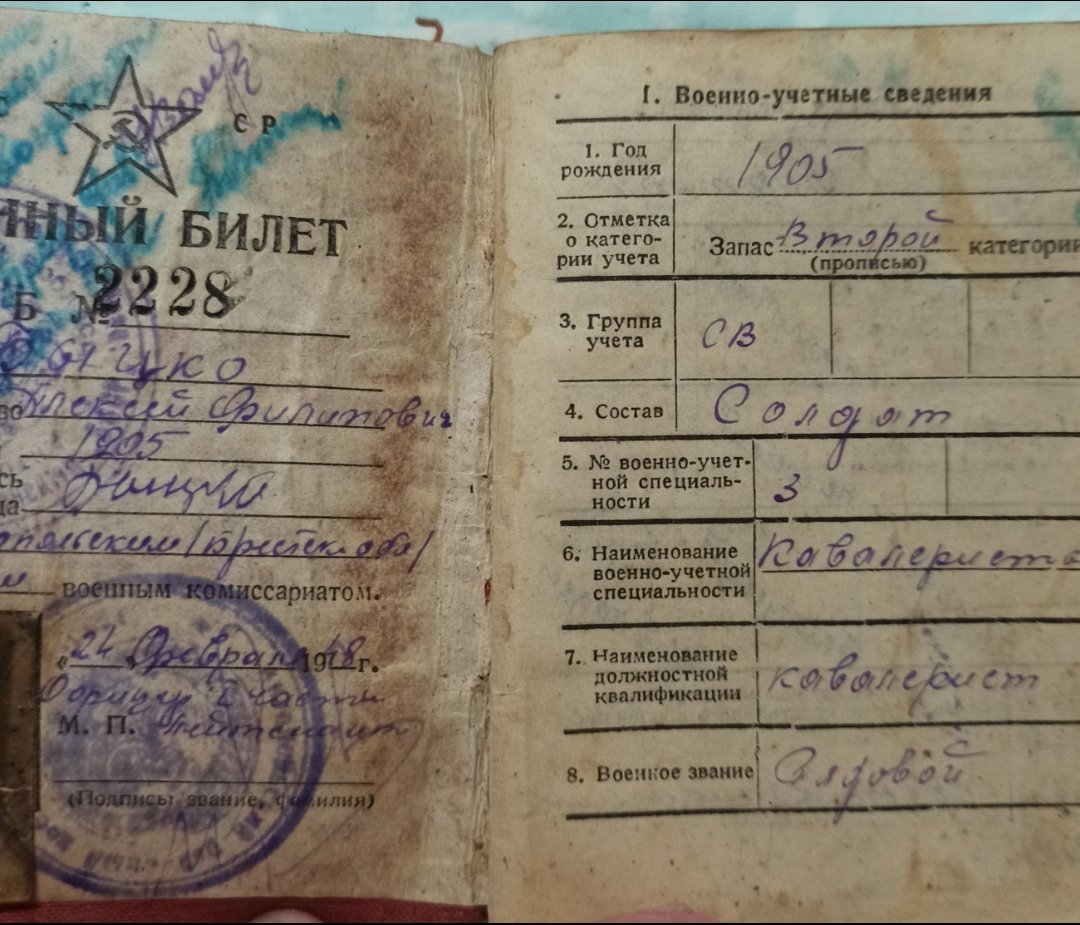 С СР
ННЫЙ БИЛЕТ
Б № 2228
во Алексей Филиппович
1905
сь
ца
военным комиссариатом.
„24„ Февраля 1948 г.
Офицер I части
М. П. Лейтенант
(Подписы звание, фамилия)
I. Военно-учетные сведения
1. Год
рождения
1905
2. Отметка
о катего-
рии учета
Запас Второй категории
(прописью)
3. Группа
учета
СВ
4. Состав
Солдат
5. № военно-учет-
ной специаль-
ности
3
6. Наименование
военно-учетной
специальности
Кавалерист
7. Наименование
должностной
квалификации
кавалерист
8. Военное звание
Рядовой